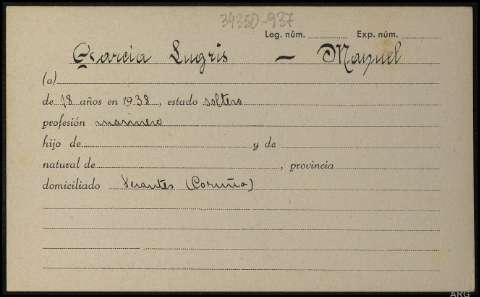 34350-937
Leg. núm. Exp. núm.
Garcia Lugris — Manuel
(a)
de 18 años en 1938, estado soltero
profesión marinero
hijo de y de
natural de , provincia
domiciliado Serantes (Coruña)
ARG